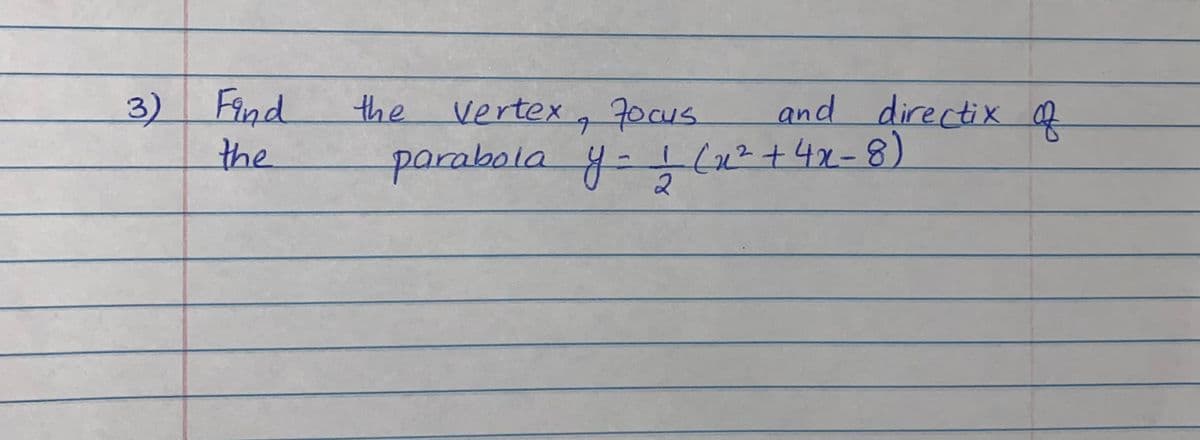 3) Find the vertex, focus and directix of
the parabola y = 1/2 (x² + 4x - 8)